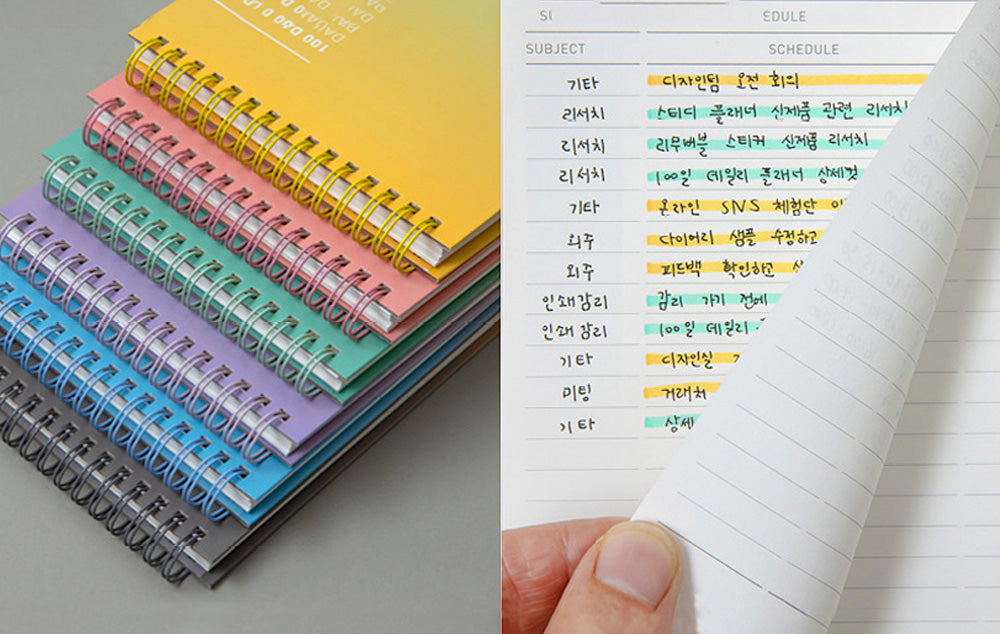 100
SUBJECT SCHEDULE
기타 디자인팀 오전 회의
리서치 스터디 플래너 신제품 관련 리서치
리서치 리무버블 스티커 신제품 리서치
리서치 100일 데일리 플래너 상세컷
기타 온라인 SNS 체험단
외주 다이어리 샘플 수정하고
외주 피드백 확인하고
인쇄감리 감리 가기 전에
인쇄감리 100일 데일리
기타 디자인실
미팅 거래처
기타 상세